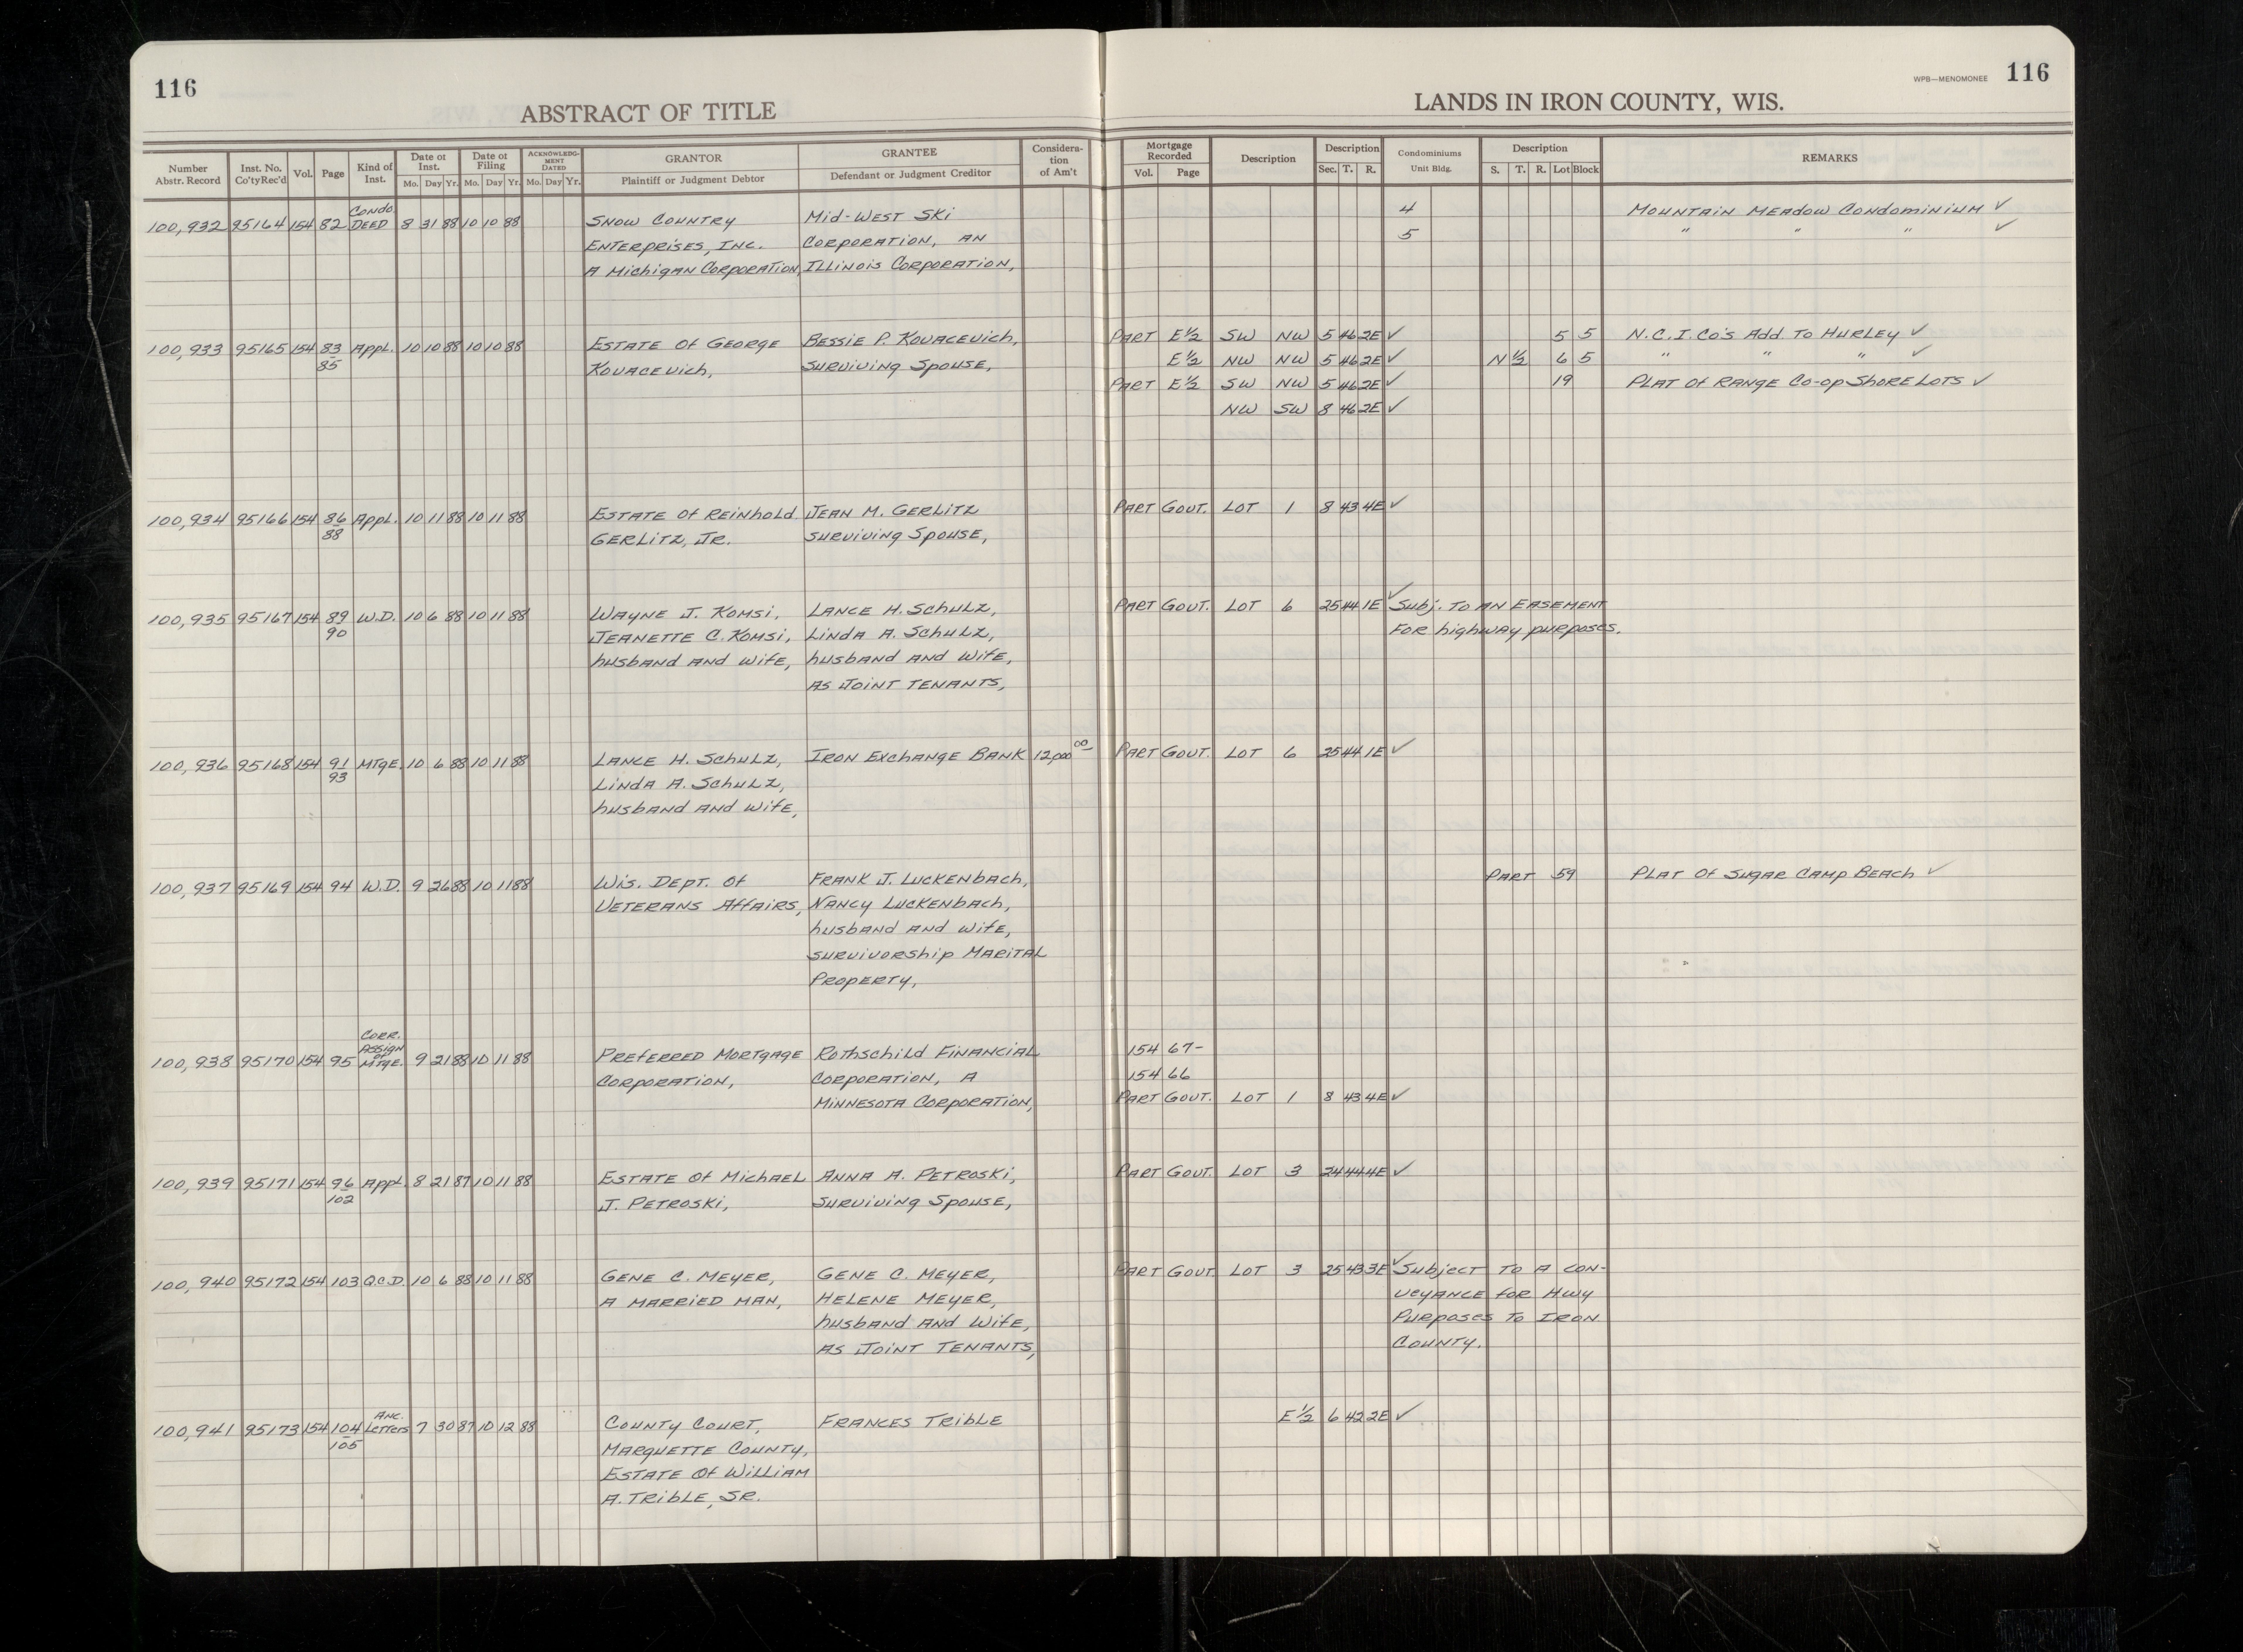 116
ABSTRACT OF TITLE
LANDS IN IRON COUNTY, WIS.
WPB—MENOMONEE 116
Number Abstr. Record | Inst. No. Co'ty Rec'd | Vol. | Page | Kind of Inst. | Date of Inst. Mo. Day Yr. | Date of Filing Mo. Day Yr. | ACKNOWLEDGMENT DATED Mo. Day Yr. | GRANTOR Plaintiff or Judgment Debtor | GRANTEE Defendant or Judgment Creditor | Consideration of Am't | Mortgage Recorded Vol. Page | Description | Description Sec. T. R. | Condominiums Unit Bldg. | Description S. T. R. Lot Block | REMARKS
100,932 95164 154 82 Condo. Deed 8 31 88 10 10 88 Snow Country Mid-West Ski 4 Mountain Meadow Condominium ✓
Enterprises, Inc. Corporation, an 5 " " " ✓
A Michigan Corporation, Illinois Corporation,
100,933 95165 154 83/85 Appl. 10 10 88 10 10 88 Estate of George Bessie P. Kovacevich, Part E½ SW NW 5 46 2E ✓ 5 5 N.C.I. Co's Add. To Hurley ✓
Kovacevich, Surviving Spouse, E½ NW NW 5 46 2E ✓ N½ 6 5 " " " ✓
Part E½ SW NW 5 46 2E ✓ 19 Plat of Range Co-op Shore Lots ✓
NW SW 8 46 2E ✓
100,934 95166 154 86/88 Appl. 10 11 88 10 11 88 Estate of Reinhold Jean M. Gerlitz Part Govt. Lot 1 8 43 4E ✓
Gerlitz, Jr. Surviving Spouse,
100,935 95167 154 89/90 W.D. 10 6 88 10 11 88 Wayne J. Komsi, Lance H. Schulz, Part Govt. Lot 6 25 44 1E ✓ Subj. to an easement
Jeanette C. Komsi, Linda A. Schulz, for highway purposes.
husband and wife, husband and wife,
as joint tenants,
100,936 95168 154 91/93 Mtge. 10 6 88 10 11 88 Lance H. Schulz, Iron Exchange Bank 12,000 00 Part Govt. Lot 6 25 44 1E ✓
Linda A. Schulz,
husband and wife,
100,937 95169 154 94 W.D. 9 26 88 10 11 88 Wis. Dept. of Frank J. Luckenbach, Part 59 Plat of Sugar Camp Beach ✓
Veterans Affairs, Nancy Luckenbach,
husband and wife,
survivorship marital
property,
100,938 95170 154 95 Corr. Assign of Mtge. 9 21 88 10 11 88 Preferred Mortgage Rothschild Financial 154 67-
Corporation, Corporation, a 154 66
Minnesota Corporation, Part Govt. Lot 1 8 43 4E ✓
100,939 95171 154 96/102 Appl. 8 21 87 10 11 88 Estate of Michael Anna A. Petroski, Part Govt. Lot 3 24 44 4E ✓
J. Petroski, Surviving Spouse,
100,940 95172 154 103 Q.C.D. 10 6 88 10 11 88 Gene C. Meyer, Gene C. Meyer, Part Govt Lot 3 25 43 3E ✓ Subject to a con-
a married man, Helene Meyer, veyance for Hwy
husband and wife, purposes to Iron
as joint tenants, County.
100,941 95173 154 104/105 Anc. Letters 7 30 87 10 12 88 County Court, Frances Trible E½ 6 42 2E ✓
Marquette County,
Estate of William
A. Trible, Sr.